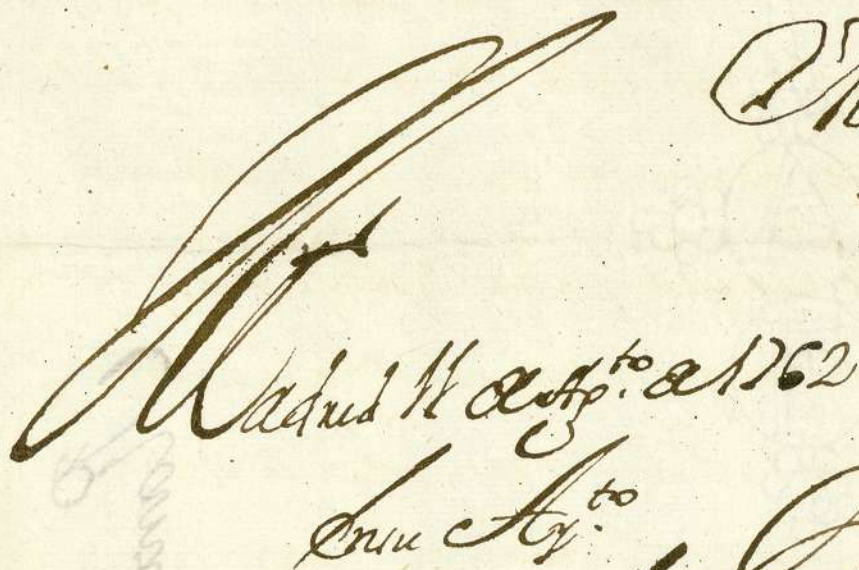 Madrid 11 de Agto. de 1762
En su Ayto.